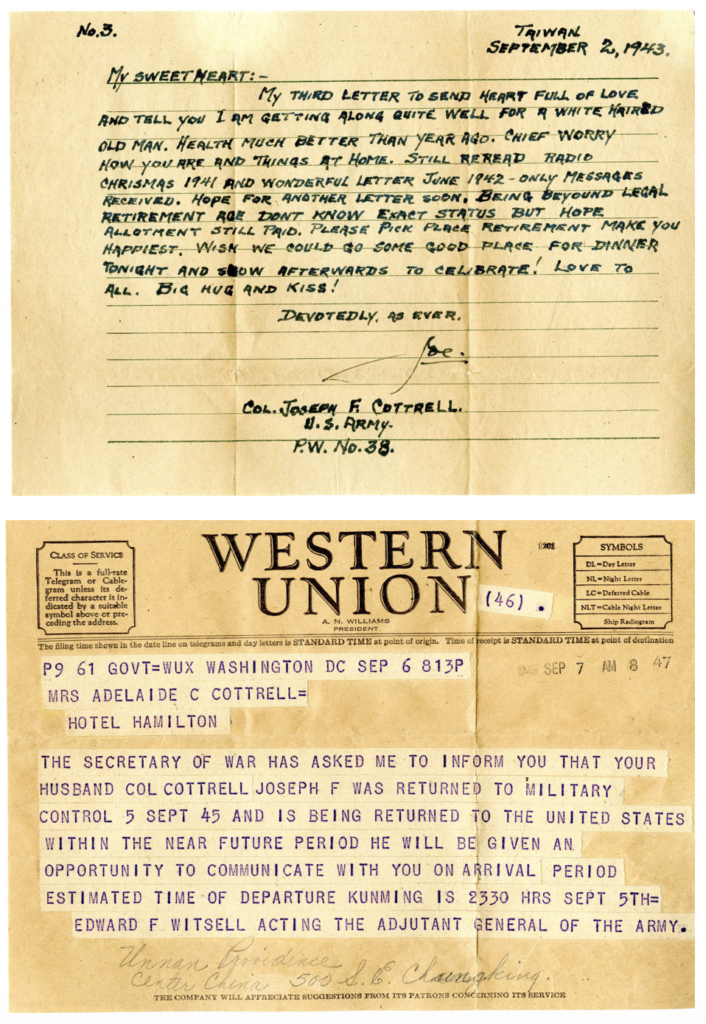 No. 3.
TAIWAN
SEPTEMBER 2, 1943.
MY SWEETHEART:-
MY THIRD LETTER TO SEND HEART FULL OF LOVE
AND TELL YOU I AM GETTING ALONG QUITE WELL FOR A WHITE HAIRED
OLD MAN. HEALTH MUCH BETTER THAN YEAR AGO. CHIEF WORRY
HOW YOU ARE AND THINGS AT HOME. STILL REREAD RADIO
CHRISMAS 1941 AND WONDERFUL LETTER JUNE 1942 - ONLY MESSAGES
RECEIVED. HOPE FOR ANOTHER LETTER SOON. BEING BEYOUND LEGAL
RETIREMENT AGE DONT KNOW EXACT STATUS BUT HOPE
ALLOTMENT STILL PAID. PLEASE PICK PLACE RETIREMENT MAKE YOU
HAPPIEST. WISH WE COULD GO SOME GOOD PLACE FOR DINNER
TONIGHT AND SHOW AFTERWARDS TO CELIBRATE! LOVE TO
ALL. BIG HUG AND KISS!
DEVOTEDLY, AS EVER.
Joe.
COL. JOSEPH F. COTTRELL.
U.S. ARMY.
P.W. No. 38.
CLASS OF SERVICE
This is a full-rate
Telegram or Cable-
gram unless its de-
ferred character is in-
dicated by a suitable
symbol above or pre-
ceding the address.
WESTERN
UNION
A. N. WILLIAMS
PRESIDENT
1201
(46) .
SYMBOLS
DL=Day Letter
NL=Night Letter
LC=Deferred Cable
NLT=Cable Night Letter
Ship Radiogram
The filing time shown in the date line on telegrams and day letters is STANDARD TIME at point of origin. Time of receipt is STANDARD TIME at point of destination
P9 61 GOVT=WUX WASHINGTON DC SEP 6 813P
SEP 7 AM 8 47
MRS ADELAIDE C COTTRELL=
HOTEL HAMILTON
THE SECRETARY OF WAR HAS ASKED ME TO INFORM YOU THAT YOUR
HUSBAND COL COTTRELL JOSEPH F WAS RETURNED TO MILITARY
CONTROL 5 SEPT 45 AND IS BEING RETURNED TO THE UNITED STATES
WITHIN THE NEAR FUTURE PERIOD HE WILL BE GIVEN AN
OPPORTUNITY TO COMMUNICATE WITH YOU ON ARRIVAL PERIOD
ESTIMATED TIME OF DEPARTURE KUNMING IS 2330 HRS SEPT 5TH=
EDWARD F WITSELL ACTING THE ADJUTANT GENERAL OF THE ARMY.
Unnan Providence
Center China 500 S. E. Chungking.
THE COMPANY WILL APPRECIATE SUGGESTIONS FROM ITS PATRONS CONCERNING ITS SERVICE